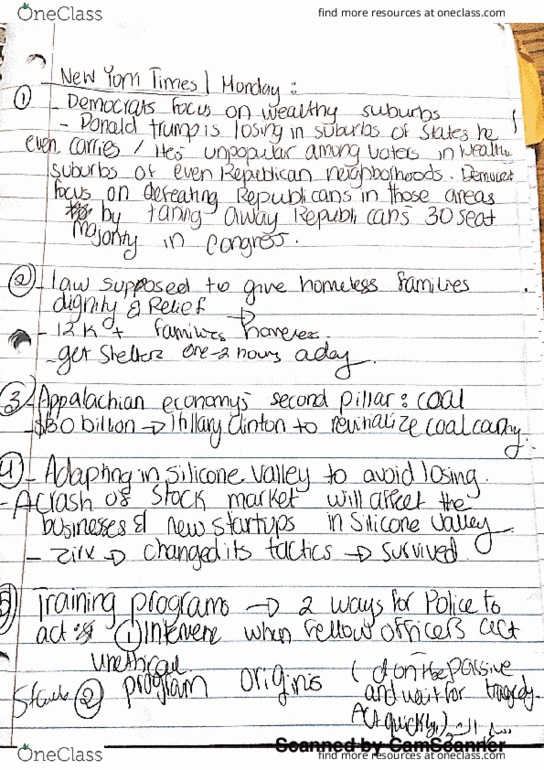 OneClass
find more resources at oneclass.com
New York Times | Monday :
① - Democrats focus on wealthy suburbs
- Donald trump is losing in suburbs of states he
even carries / He's unpopular among voters in wealthy
suburbs of even Republican neighborhoods. Democrats
focus on defeating Republicans in those areas
by taking away Republicans 30 seat
majority in congress.
② - law supposed to give homeless families
dignity & Relief
- 12K of families however
- get shelters one-2 hours a day.
③ Appalachian economy's second pillar : coal
- $30 billion → Hillary Clinton to revitalize coal
④ - Adapting in silicone valley to avoid losing.
- A crash of stock market will affect the
businesses & new startups in Silicone Valley
- Zirx → changed its tactics → survived
⑤ Training programs → 2 ways for Police to
act ① Intervene when fellow officers act
unethical
② program origins ( don't be passive
and wait for tragedy.
Act quickly)
Scanned by CamScanner
OneClass
find more resources at oneclass.com